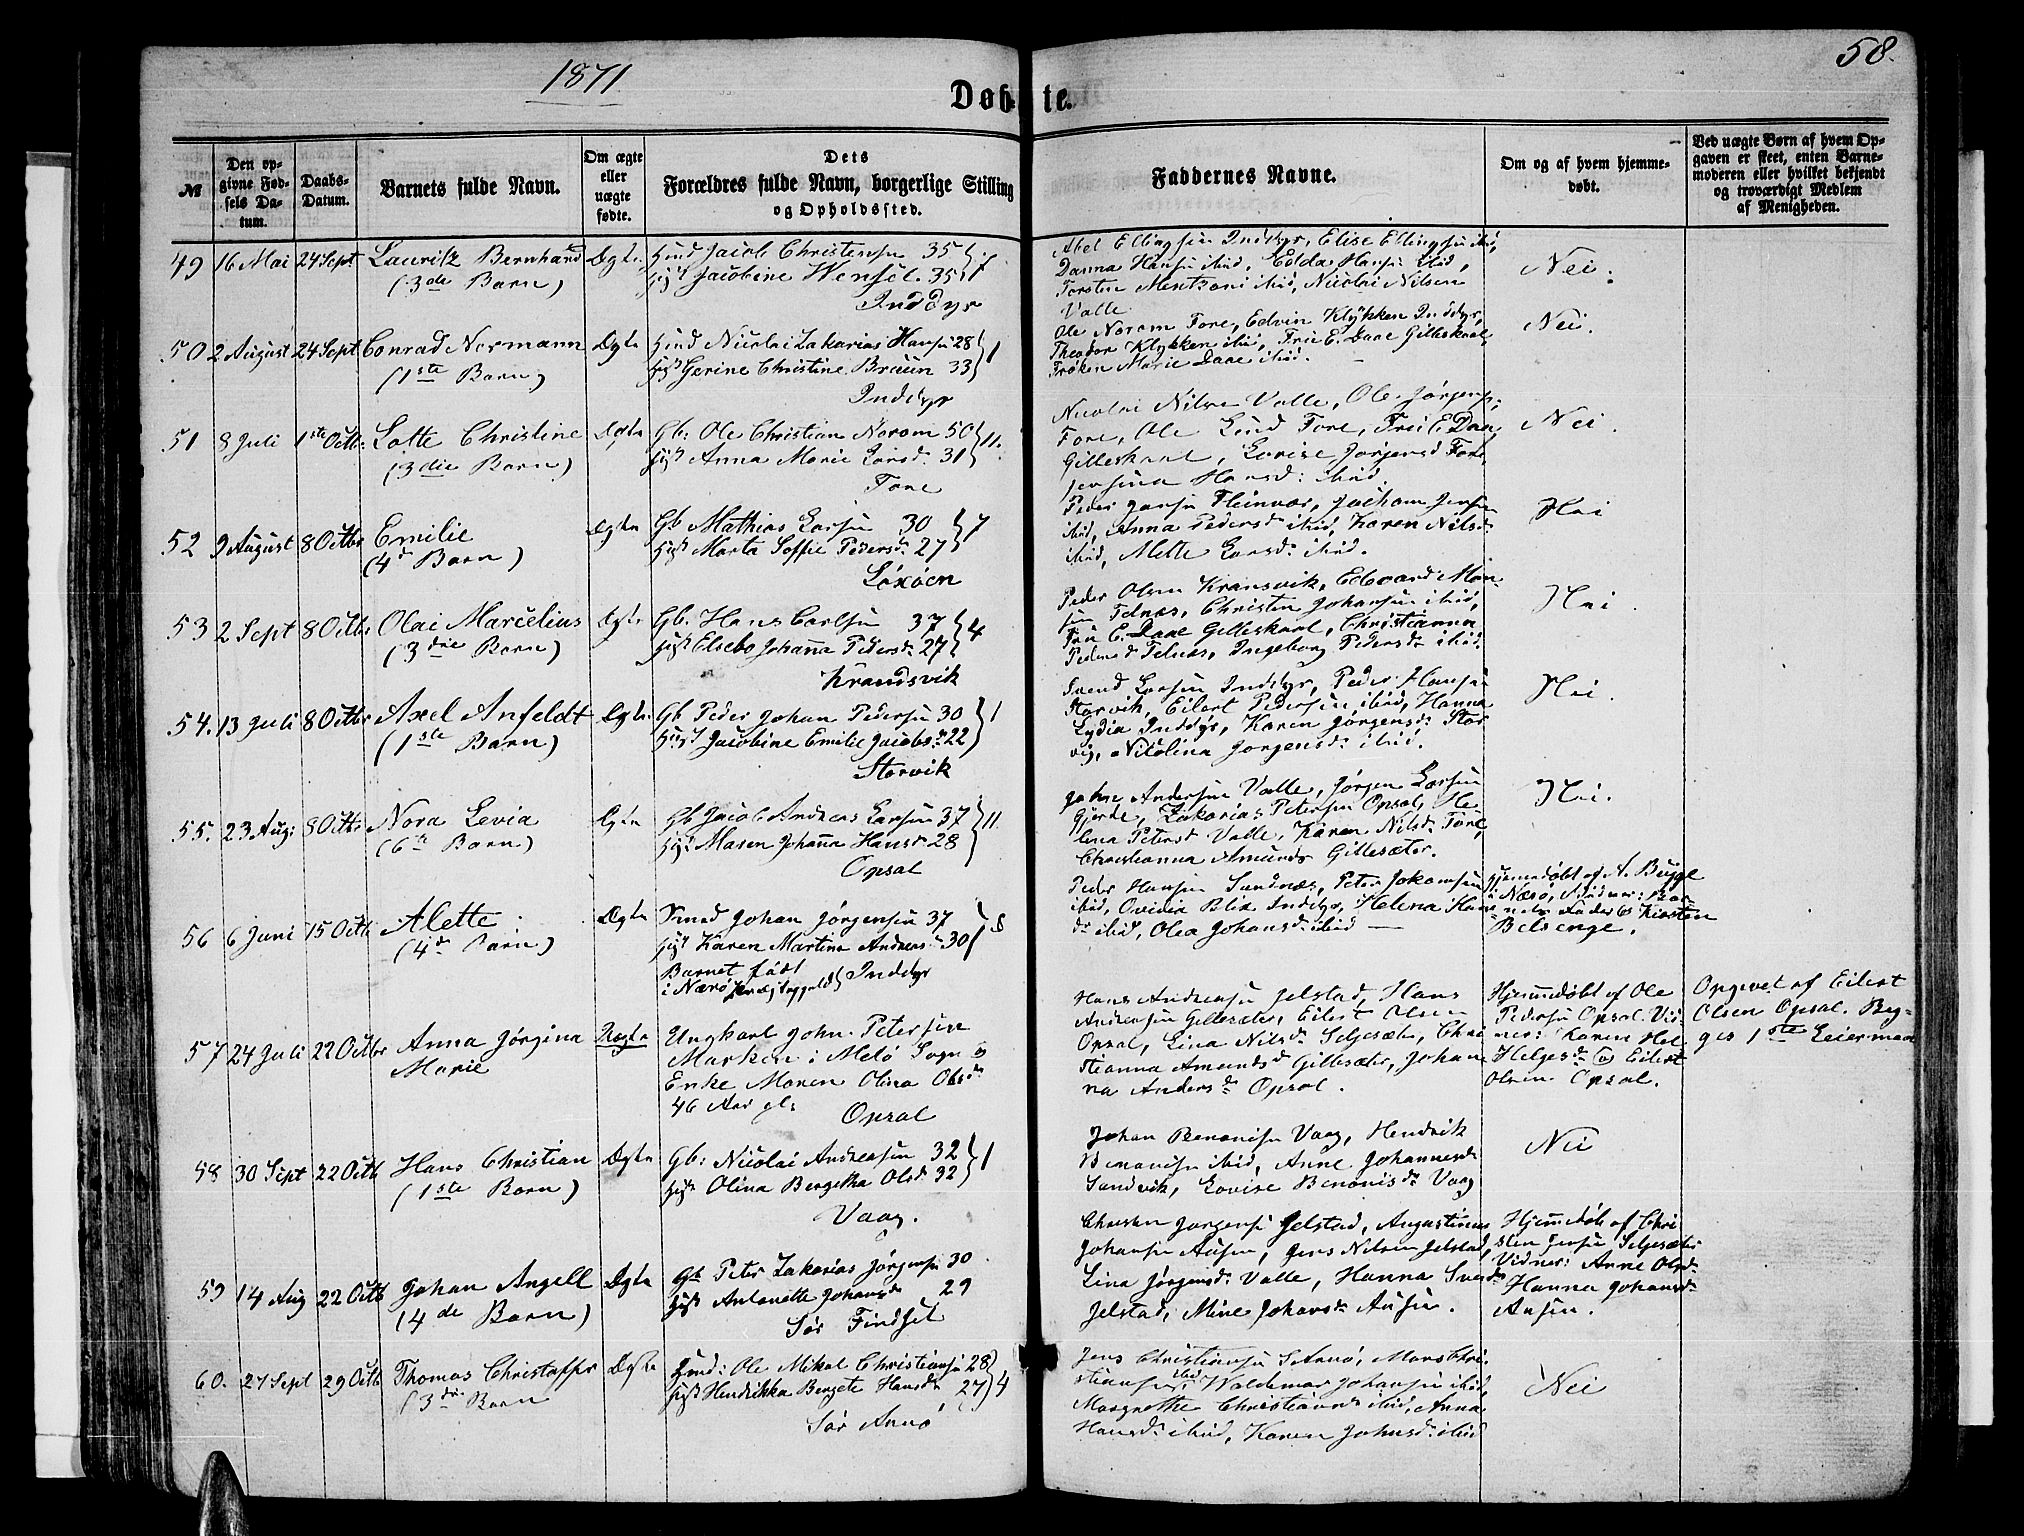 1871
58.
Døbte.
№
Den opgivne Fødsels Datum.
Daabs-Datum.
Barnets fulde Navn.
Om ægte eller uægte fødte.
Dets Forældres fulde Navn, borgerlige Stilling og Opholdssted.
Faddernes Navne.
Om og af hvem hjemmedøbt.
Ved uægte Børn af hvem Opgaven er skeet, enten Barnemoderen eller hvilket bekjendt og troværdigt Medlem af Menigheden.
49 16 Mai 24 Sept Lauritz Bernhard
(3de Barn)
Ægte
Hmd Jacob Christensen 35
Jacobine Wensel. 35
Inddyr
Abel Ellingsen Inddyr, Elise Ellingsen ibid,
Danna Hansen ibid, Edda Hansen ibid,
Torsten Mentsoni ibid, Nicolai Nilsen
Valle
Nei.
50 2 August 24 Sept Conrad Normann
(1ste Barn)
Ægte
Hmd Nicolai Zakarias Hansen 28
Gerine Christine Bruun 33
1
Inddyr
Ole Norum Fore, Edvin Klykken Inddyr,
Theodor Klykken ibid, Frue E. Daae Gilleskaal,
Frøken Marie Daae ibid.
Nei.
51 8 Juli 1ste Octb: Lotte Christine
(3die Barn)
Ægte
Gb: Ole Christian Norom 50
Anna Marie Larsd. 31
11.
Fore
Nicolai Nilsen Valle, Ole Jørgens.
Fore, Ole Lund Fore, Frue E Daae
Gilleskaal, Lovise Jørgensd Fore,
Jensina Hansd: ibid.
Nei.
52 9 August 8 Octbr Emilie
(4d Barn)
Ægte
Gb Mathias Larsen 30
Marta Soffie Pedersd: 27
Peder Jansen Fleinvær, Jochom Jensen
ibid, Anna Pedersd: ibid, Karen Nilsd:
ibid, Mette Larsd: ibid.
Nei
53 2 Sept 8 Octbr Olai Marcelius
(3die Barn)
Ægte
Gb. Hans Carlsen 37
Elsebe Johanna Pedersd: 27
4
Krandsvik
Peder Olsen Kransvik, Edvard Mon
sen Felnæs, Christen Johansen ibid,
Fru E. Daae Gilleskaal, Christianna
Pedersd Felnæs, Ingeborg Pedersd: ibid.
Nei.
54. 13 Juli 8 Octbr Axel Anfeldt
(1ste Barn)
Ægte
Gb Peder Johan Pedersen 30
Jacobine Emilie Jacobsd: 22
1
Storvik
Svend Larsen Inddyr, Peder Hansen
Storvik, Eilert Pedersen ibid, Hanna
Lydia Inddyr, Karen Jørgensd: Stor
vig, Nicolina Jørgensd: ibid.
Nei.
55. 23 Aug: 8 Octbr Nora Levia
(6te Barn)
Ægte
Gb Jacob Andreas Larsen 37
Maren Johanna Hansd: 28
11.
Opsal
Johan Andersen Valle, Jørgen Larsen
Gjerde, Zakarias Petersen Opsal, He
lena Petersd: Valle, Karen Nilsd: Fore,
Christianna Amundsd Gillesæter.
Nei.
56 6 Juni 15 Octb Alette
(4d Barn)
Ægte
Smed Johan Jørgensen 37
Karen Martina Andreasd: 30
Barnet født
i Nærø
Inddyr
Peder Hansen Sandnæs, Peter Johansen
ibid, Ovidia Blix Inddyr, Helena Hans
d: ibid, Olea Johansd: ibid
Hjemmedøbt af A. Bugge
i Nærø, Vidner: Bar
nets Fader & Kirsten
Belsenge.
57 24 Juli 22 Octbr Anna Jørgina
Marie
Uægte
Ungkarl John Petersen
Marken i Melø Sogn &
Enke Maren Olina Olsd:
46 Aar gl:
Opsal
Hans Andersen Jelstad, Hans
Andersen Gillesæter, Eilert Olsen
Opsal, Lina Nilsd: Seljesæter, Chri
stianna Amundsd: Gillesæter, Johan
na Andersd: Opsal.
Hjemmedøbt af Ole
Pedersen Opsal. Vid
ner: Karen Hel
gesd: & Eilert
Olsen Opsal.
Opgivet af Eilert
Olsen Opsal. Beg-
ges 1ste Leiermaal
58 30 Sept 22 Octb Hans Christian
(1ste Barn)
Ægte
Gb: Nicolai Andersen 32
Olina Bergetha Olsd: 32
1
Vaag.
Johan Benonisen Vaag, Hendrik
Benonisen ibid, Anne Johannesd:
Sandvik, Lovise Benonisd: Vaag
Nei
59 14 Aug 22 Octb Johan Angell
(4de Barn)
Ægte
Gb Peter Zakarias Jørgensen 30
Antonette Johansd: 29
Sør Findset
Christen Jørgensen Jelstad, Augustinus
Johansen Ausen, Jens Nilsen Jelstad,
Lina Jørgensd: Valle, Hanna Svends
Jelstad, Mine Johansd: Ausen.
Hjemmedøb. af Chri
sten Jensen Seljesæter
Vidner: Anne Olsd:
Hanna Johansd:
Ausen.
60. 27 Sept 29 Octb Thomas Christoffer
(3die Barn
Ægte
Hmd: Ole Mikal Christiansen 28
Hendrikka Bergete Hansd: 27
4
Sør Arnø
Jens Christiansen S. Arnø, Mons Chri
stiansen ibid, Waldemar Johansen ibid,
Margrethe Christiansd: ibid, Anna
Hansd: ibid, Karen Johnsd: ibid
Nei